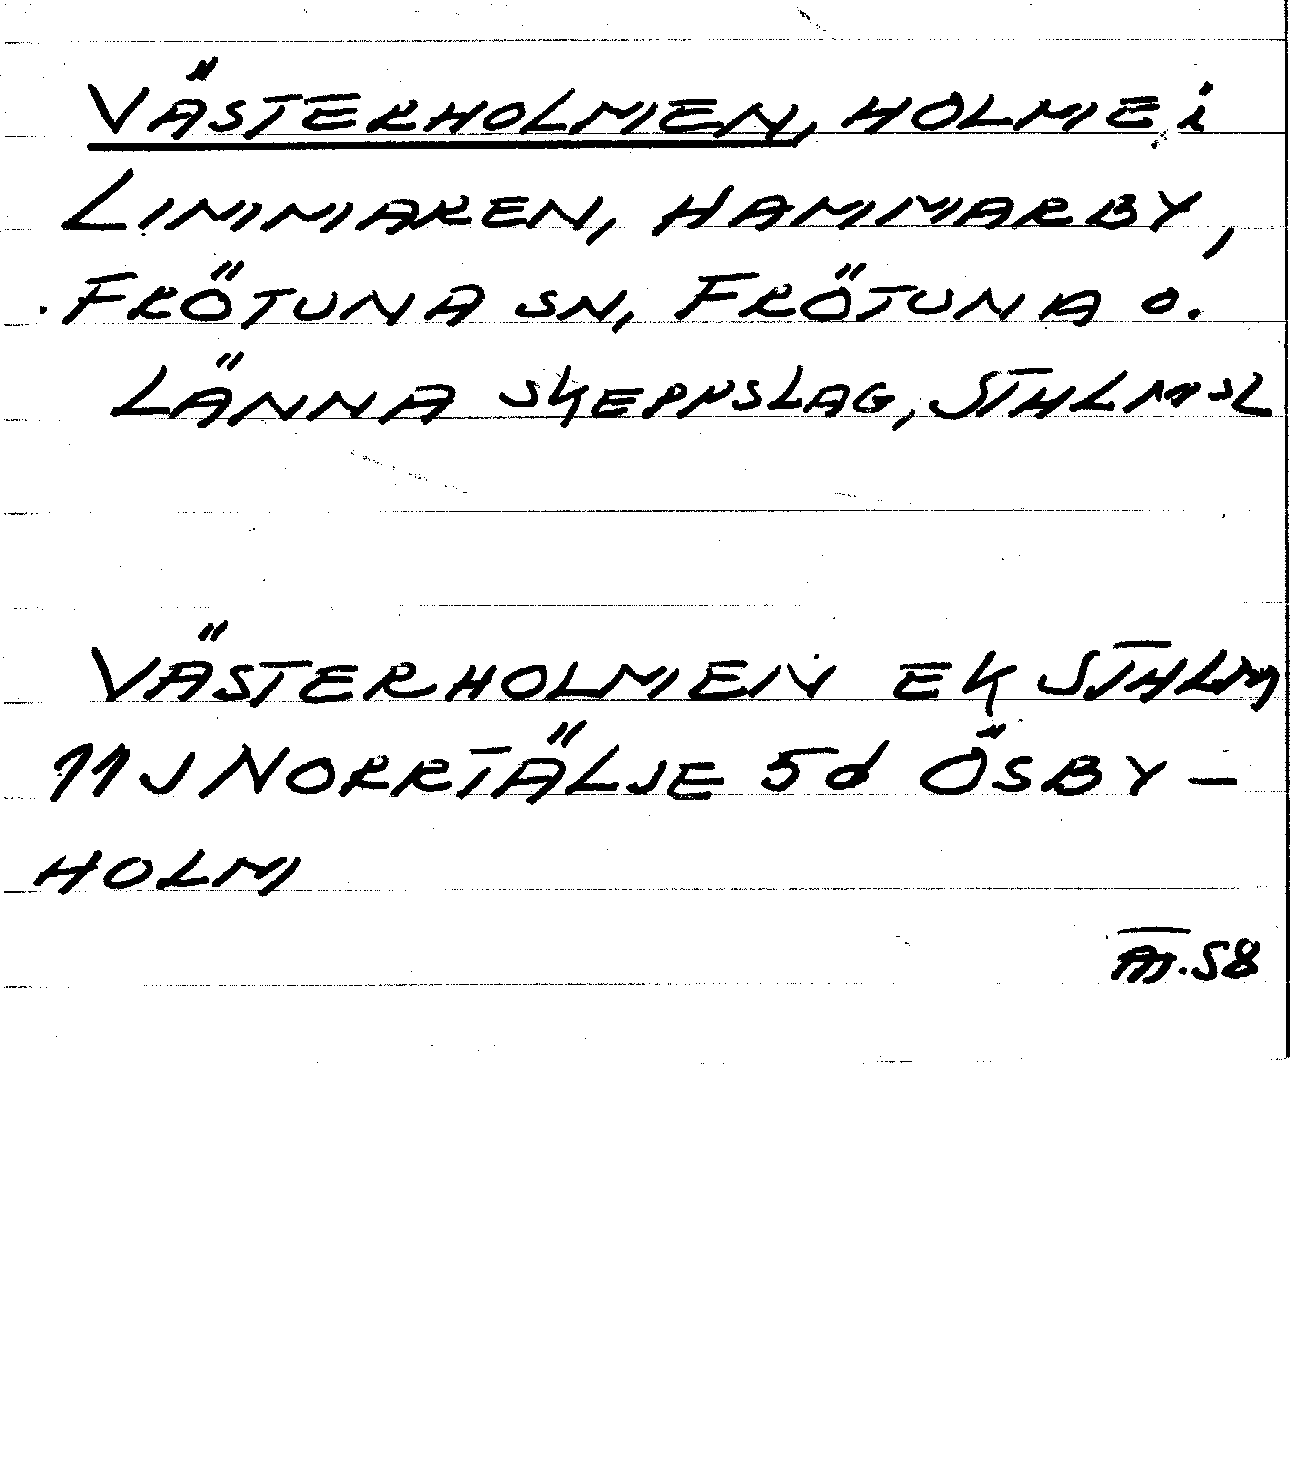 VÄSTERHOLMEN, HOLME i
LIMMAREN, HAMMARBY,
FRÖTUNA SN, FRÖTUNA O.
LÄNNA SKEPPSLAG, STHLMSL
VÄSTERHOLMEN EK STHLM
11J NORRTÄLJE 5d ÖSBY-
HOLM
58